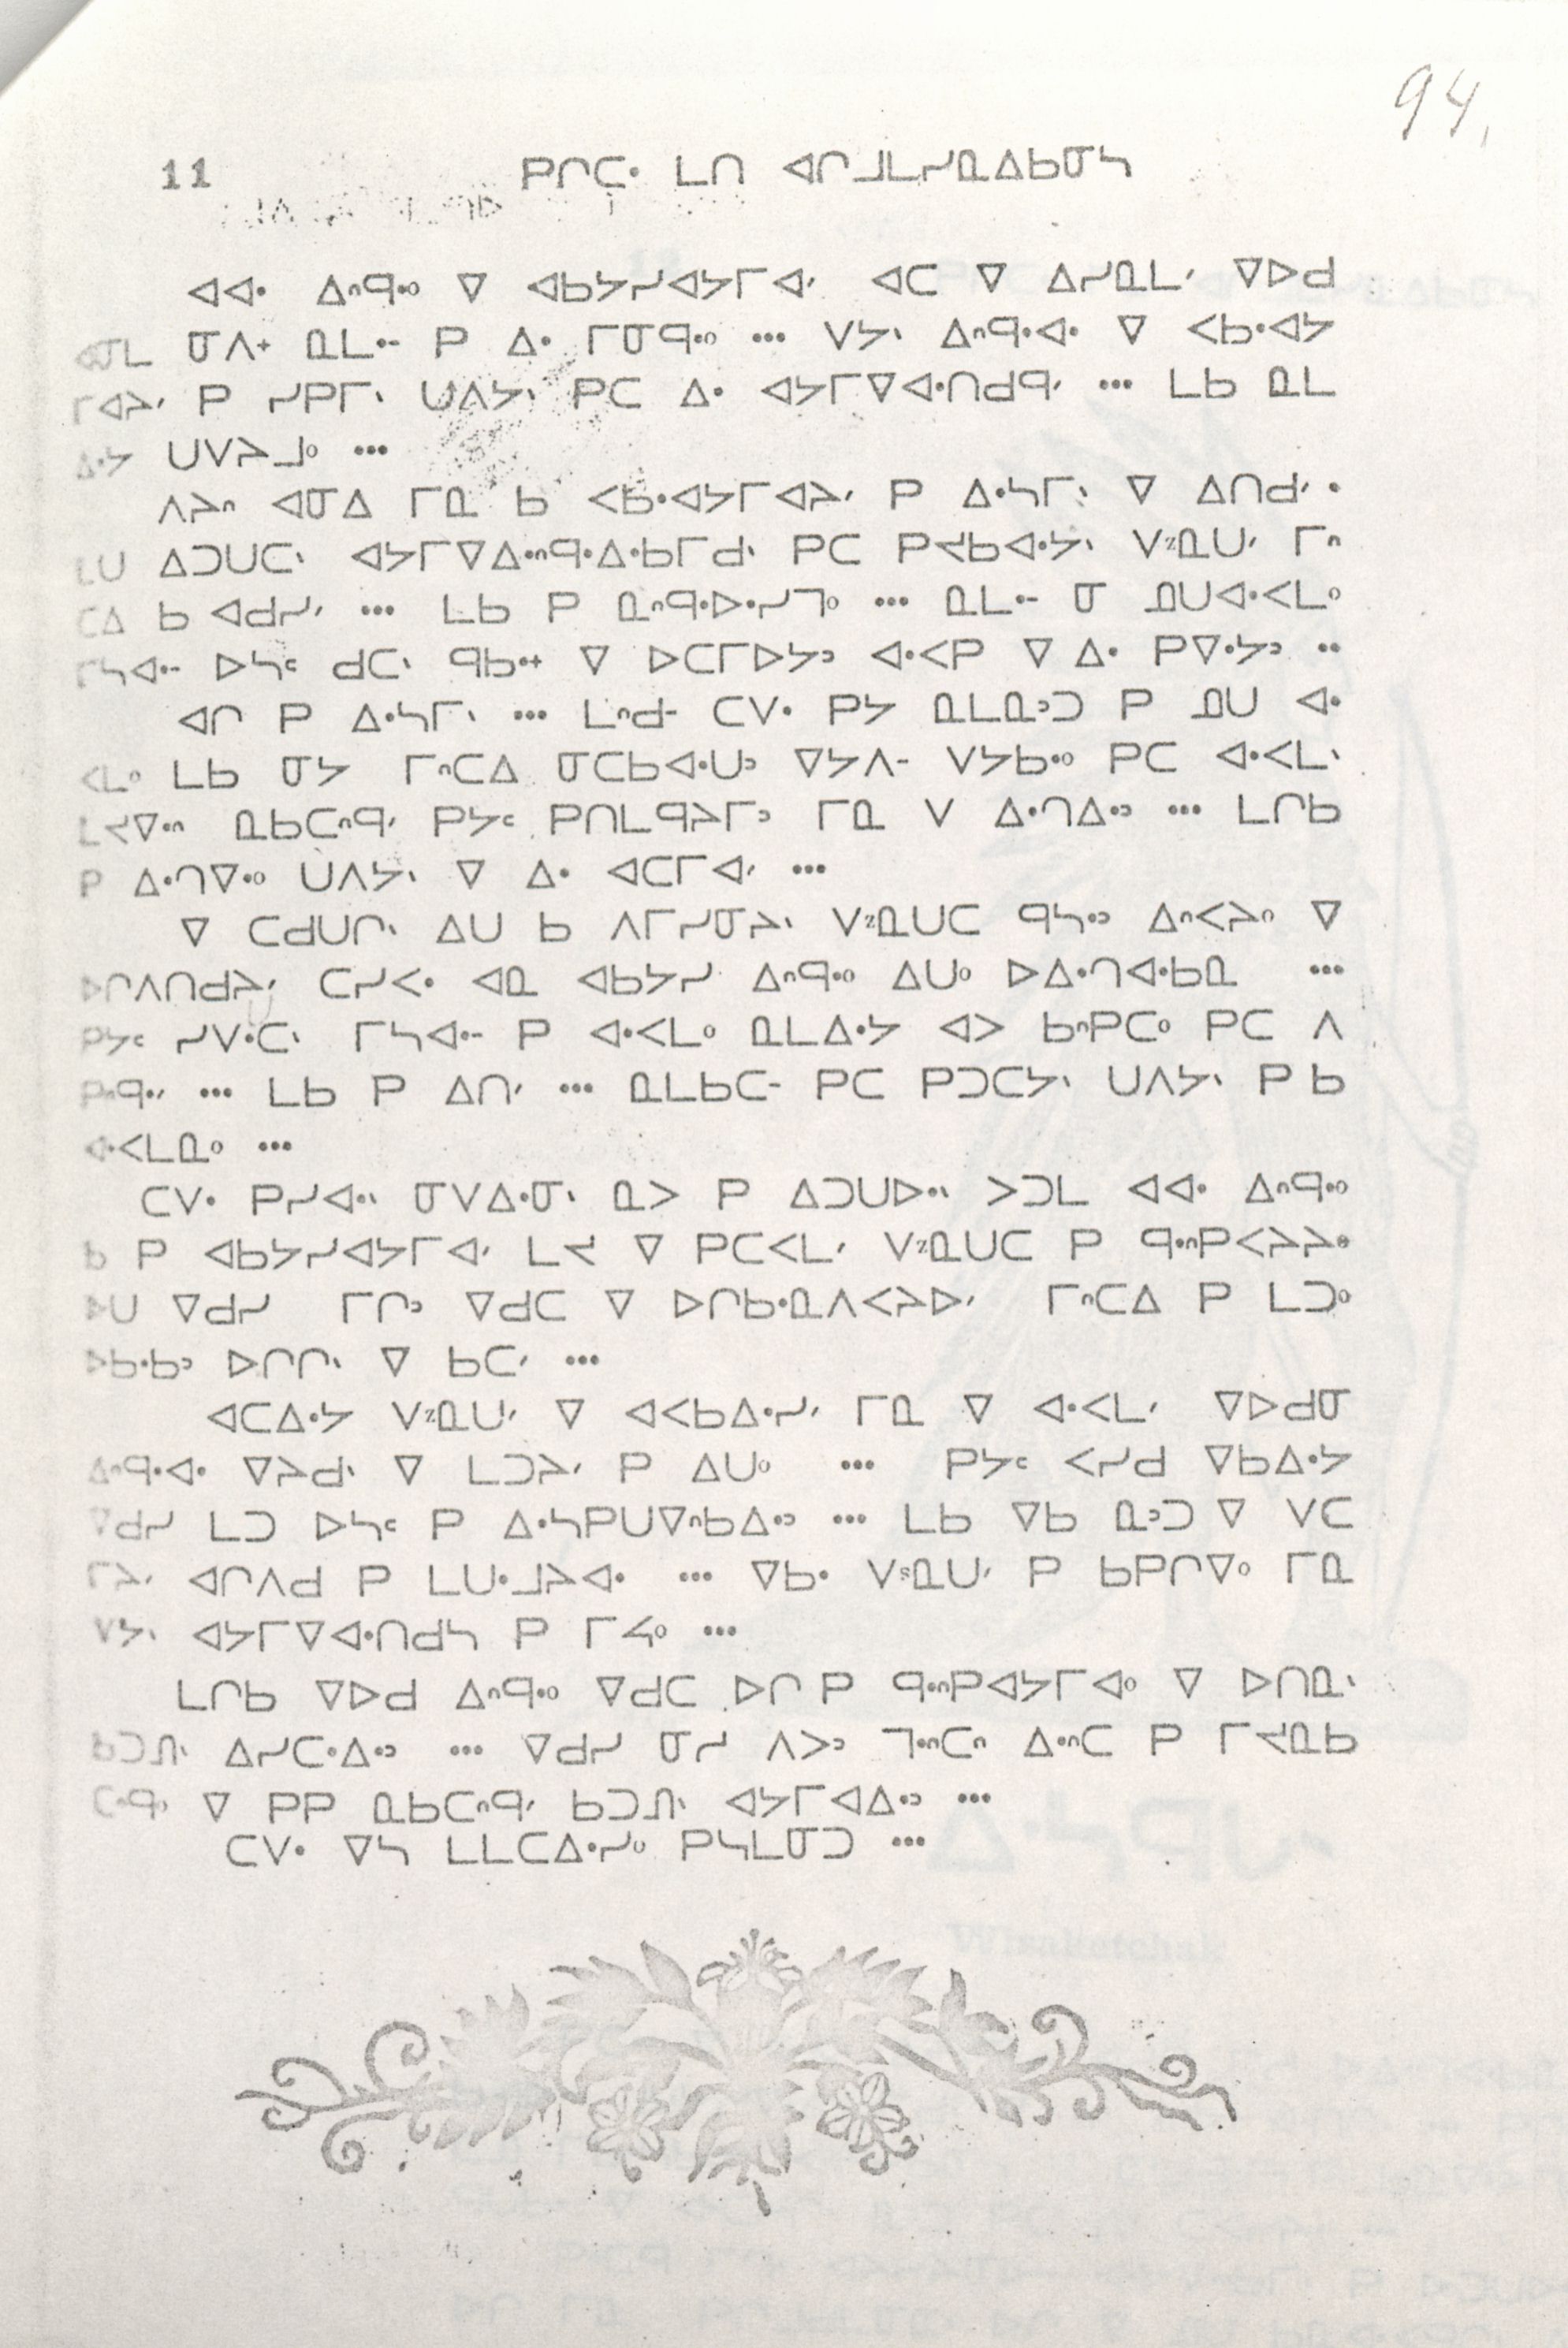 94,
11 ᑭᒋᑕᐧ ᒪᑎ ᐊᒋᒧᒪᓯᓇᐃᑲᓂᓴ
ᐊᐊᐧ ᐃᐢᑫᐧᐤ ᐁ ᐊᑲᔭᓯᐊᔭᒥᐊᐟ ᐊᑕ ᐁ ᐃᓯᓇᒪᐟ ᐁᐅᑯ
ᐊᓂᒪ ᓂᐱᐩ ᓇᒪᐧᐨ ᑭ ᐃᐧ ᒥᓂᑫᐧᐤ ... ᐯᔭᐠ ᐃᐢᑫᐧᐊᐧ ᐁ ᐸᑲᐧᐊᔭ
ᒥᐊᔨᐟ ᑭ ᓯᑭᒥᐠ ᑌᐱᔭᐠ ᑭᑕ ᐃᐧ ᐊᔭᒥᐁᐊᐧᑎᑯᑫᐟ ... ᒪᑲ ᓇᒪ
ᐃᐧᔭ ᑌᐯᔨᒧᐤ ...
ᐱᔨᐢ ᐊᓂᐃ ᒥᓇ ᑲ ᐸᑲᐧᐊᔭᒥᐊᔨᐟ ᑭ ᐃᐧᓴᒥᐠ ᐁ ᐃᑎᑯᐟ ᐧ
ᒪᑌ ᐃᑐᑌᑕᐠ ᐊᔭᒥᐁᐃᐧᐢᑫᐧᐃᐧᑲᒥᑯᐠ ᑭᑕ ᑭᔪᑲᐊᐧᔭᐠ ᐯᶻᓇᑌᐟ ᒥᐢ
ᑕᐃ ᑲ ᐊᑯᓯᐟ ... ᒪᑲ ᑭ ᓇᐢᑫᐧᐅᐧᓯᒧᐤ ... ᓇᒪᐧᐨ ᓂ ᓅᑌᐊᐧᐸᒪᐤ
ᒥᓴᐊᐧᐨ ᐅᓴᑦ ᑯᑕᐠ ᑫᑲᐧᐩ ᐁ ᐅᑕᒥᐅᔭᐣ ᐊᐧᐸᑭ ᐁ ᐃᐧ ᑭᐁᐧᔭᐣ ..
ᐊᒋ ᑭ ᐃᐧᓴᒥᐠ ... ᒪᐢᑯᐨ ᑕᐯᐧ ᑭᔭ ᓇᒪᓇᐣᑐ ᑭ ᓅᑌ ᐊᐧ
ᐸᒪᐤ ᒪᑲ ᓂᔭ ᒥᐢᑕᐃ ᓂᑕᑲᐊᐧᑌᐣ ᐁᔭᐱᐨ ᐯᔭᑲᐧᐤ ᑭᑕ ᐊᐧᐸᒪᐠ
ᒪᔪᐁᐧᐢ ᓇᑲᑕᐢᑫᐟ ᑭᔭᑦ ᑭᑎᒪᑫᔨᒥᐣ ᒥᓇ ᐯ ᐃᐧᒉᐃᐧᐣ ... ᒪᒋᑲ
ᑭ ᐃᐧᒉᐁᐧᐤ ᑌᐱᔭᐠ ᐁ ᐃᐧ ᐊᑕᒥᐊᐟ ...
ᐁ ᑕᑯᑌᒋᐠ ᐃᑌ ᑲ ᐱᒥᓯᓂᔨᐠ ᐯᶻᓇᑌᑕ ᑫᓴᐧᐣ ᐃᐢᐸᔨᐣ ᐁ
ᐅᒋᐱᑎᑯᔨᐟ ᑕᓯᐸᐧ ᐊᓇ ᐊᑲᔭᓯ ᐃᐢᑫᐧᐤ ᐃᑌᐤ ᐅᐃᐧᒉᐊᐧᑲᓇ ...
ᑭᔭᑦ ᓯᐯᐧᑕᐠ ᒥᓴᐊᐧᐨ ᑭ ᐊᐧᐸᒪᐤ ᓇᒪᐃᐧᔭ ᐊᐳ ᑲᐢᑭᑕᐤ ᑭᑕ ᐱ
ᑭᐢᑫᐧᐟ ... ᒪᑲ ᑭ ᐃᑎᐟ ... ᓇᒪᑲᑕᐨ ᑭᑕ ᑭᑐᑕᔭᐠ ᑌᐱᔭᐠ ᑭ ᑲ
ᐊᐧᐸᒪᓇᐤ ...
ᑕᐯᐧ ᑭᓯᐊᐧᐠ ᓂᐯᐃᐧᓂᐠ ᓇᐳ ᑭ ᐃᑐᑌᐅᐧᐠ ᐳᑐᒪ ᐊᐊᐧ ᐃᐢᑫᐧᐤ
ᑲ ᑭ ᐊᑲᔭᓯᐊᔭᒥᐊᐟ ᒪᔪ ᐁ ᑭᑕᐸᒪᐟ ᐯᶻᓇᑌᑕ ᑭ ᑫᐧᐢᑭᐸᔨᔨᐤ
ᐅᑌ ᐁᑯᓯ ᒥᒋᐣ ᐁᑯᑕ ᐁ ᐅᒋᑲᐧᓇᐱᐸᔨᐅᐟ ᒥᐢᑕᐃ ᑭ ᒪᑐᐤ
ᐅᑲᐧᑲᐣ ᐅᒋᒋᐠ ᐁ ᑲᑕᐟ ...
ᐊᑕᐃᐧᔭ ᐯᶻᓇᑌᐟ ᐁ ᐊᐸᑲᐃᐧᓯᐟ ᒥᓇ ᐁ ᐊᐧᐸᒪᐟ ᐁᐅᑯᓂ
ᐃᐢᑫᐧᐊᐧ ᐁᔨᑯᐠ ᐁ ᒪᑐᔨᐟ ᑭ ᐃᑌᐤ ... ᑭᔭᑦ ᐸᓯᑯ ᐁᑲᐃᐧᔭ
ᐁᑯᓯ ᒪᑐ ᐅᓴᑦ ᑭ ᐃᐧᓴᑭᑌᐁᐢᑲᐃᐧᐣ ... ᒪᑲ ᐁᑲ ᓇᐣᑐ ᐁ ᐯᑕ
ᒥᔨᐟ ᐊᒋᐱᑯ ᑭ ᒪᑌᐧᒧᔨᐊᐧ ... ᐁᑲᐧ ᐯˢᓇᑌᐟ ᑭ ᑲᑭᒋᐁᐤ ᒥᓇ
ᐯᔭᐠ ᐊᔭᒥᐁᐊᐧᑎᑯᓴ ᑭ ᒥᔦᐤ ...
ᒪᒋᑲ ᐁᐅᑯ ᐃᐢᑫᐧᐤ ᐁᑯᑕ ᐅᒋ ᑭ ᑫᐧᐢᑭᐊᔭᒥᐊᐤ ᐁ ᐅᑎᓇᐠ
ᑲᑐᓕᐠ ᐃᓯᑕᐧᐃᐧᐣ ... ᐁᑯᓯ ᓂᓯ ᐱᐳᐣ ᒣᐧᐢᑕᐢ ᐃᐧᐢᑕ ᑭ ᒥᔪᓇᑲ
ᑕᐧᑫᐣ ᐁ ᑭᑭ ᓇᑲᑕᐢᑫᐟ ᑲᑐᓕᐠ ᐊᔭᒥᐊᐃᐧᐣ ...
ᑕᐯᐧ ᐁᓴ ᒪᒪᑕᐃᐧᓯᐤ ᑭᓴᒪᓂᑐ ...